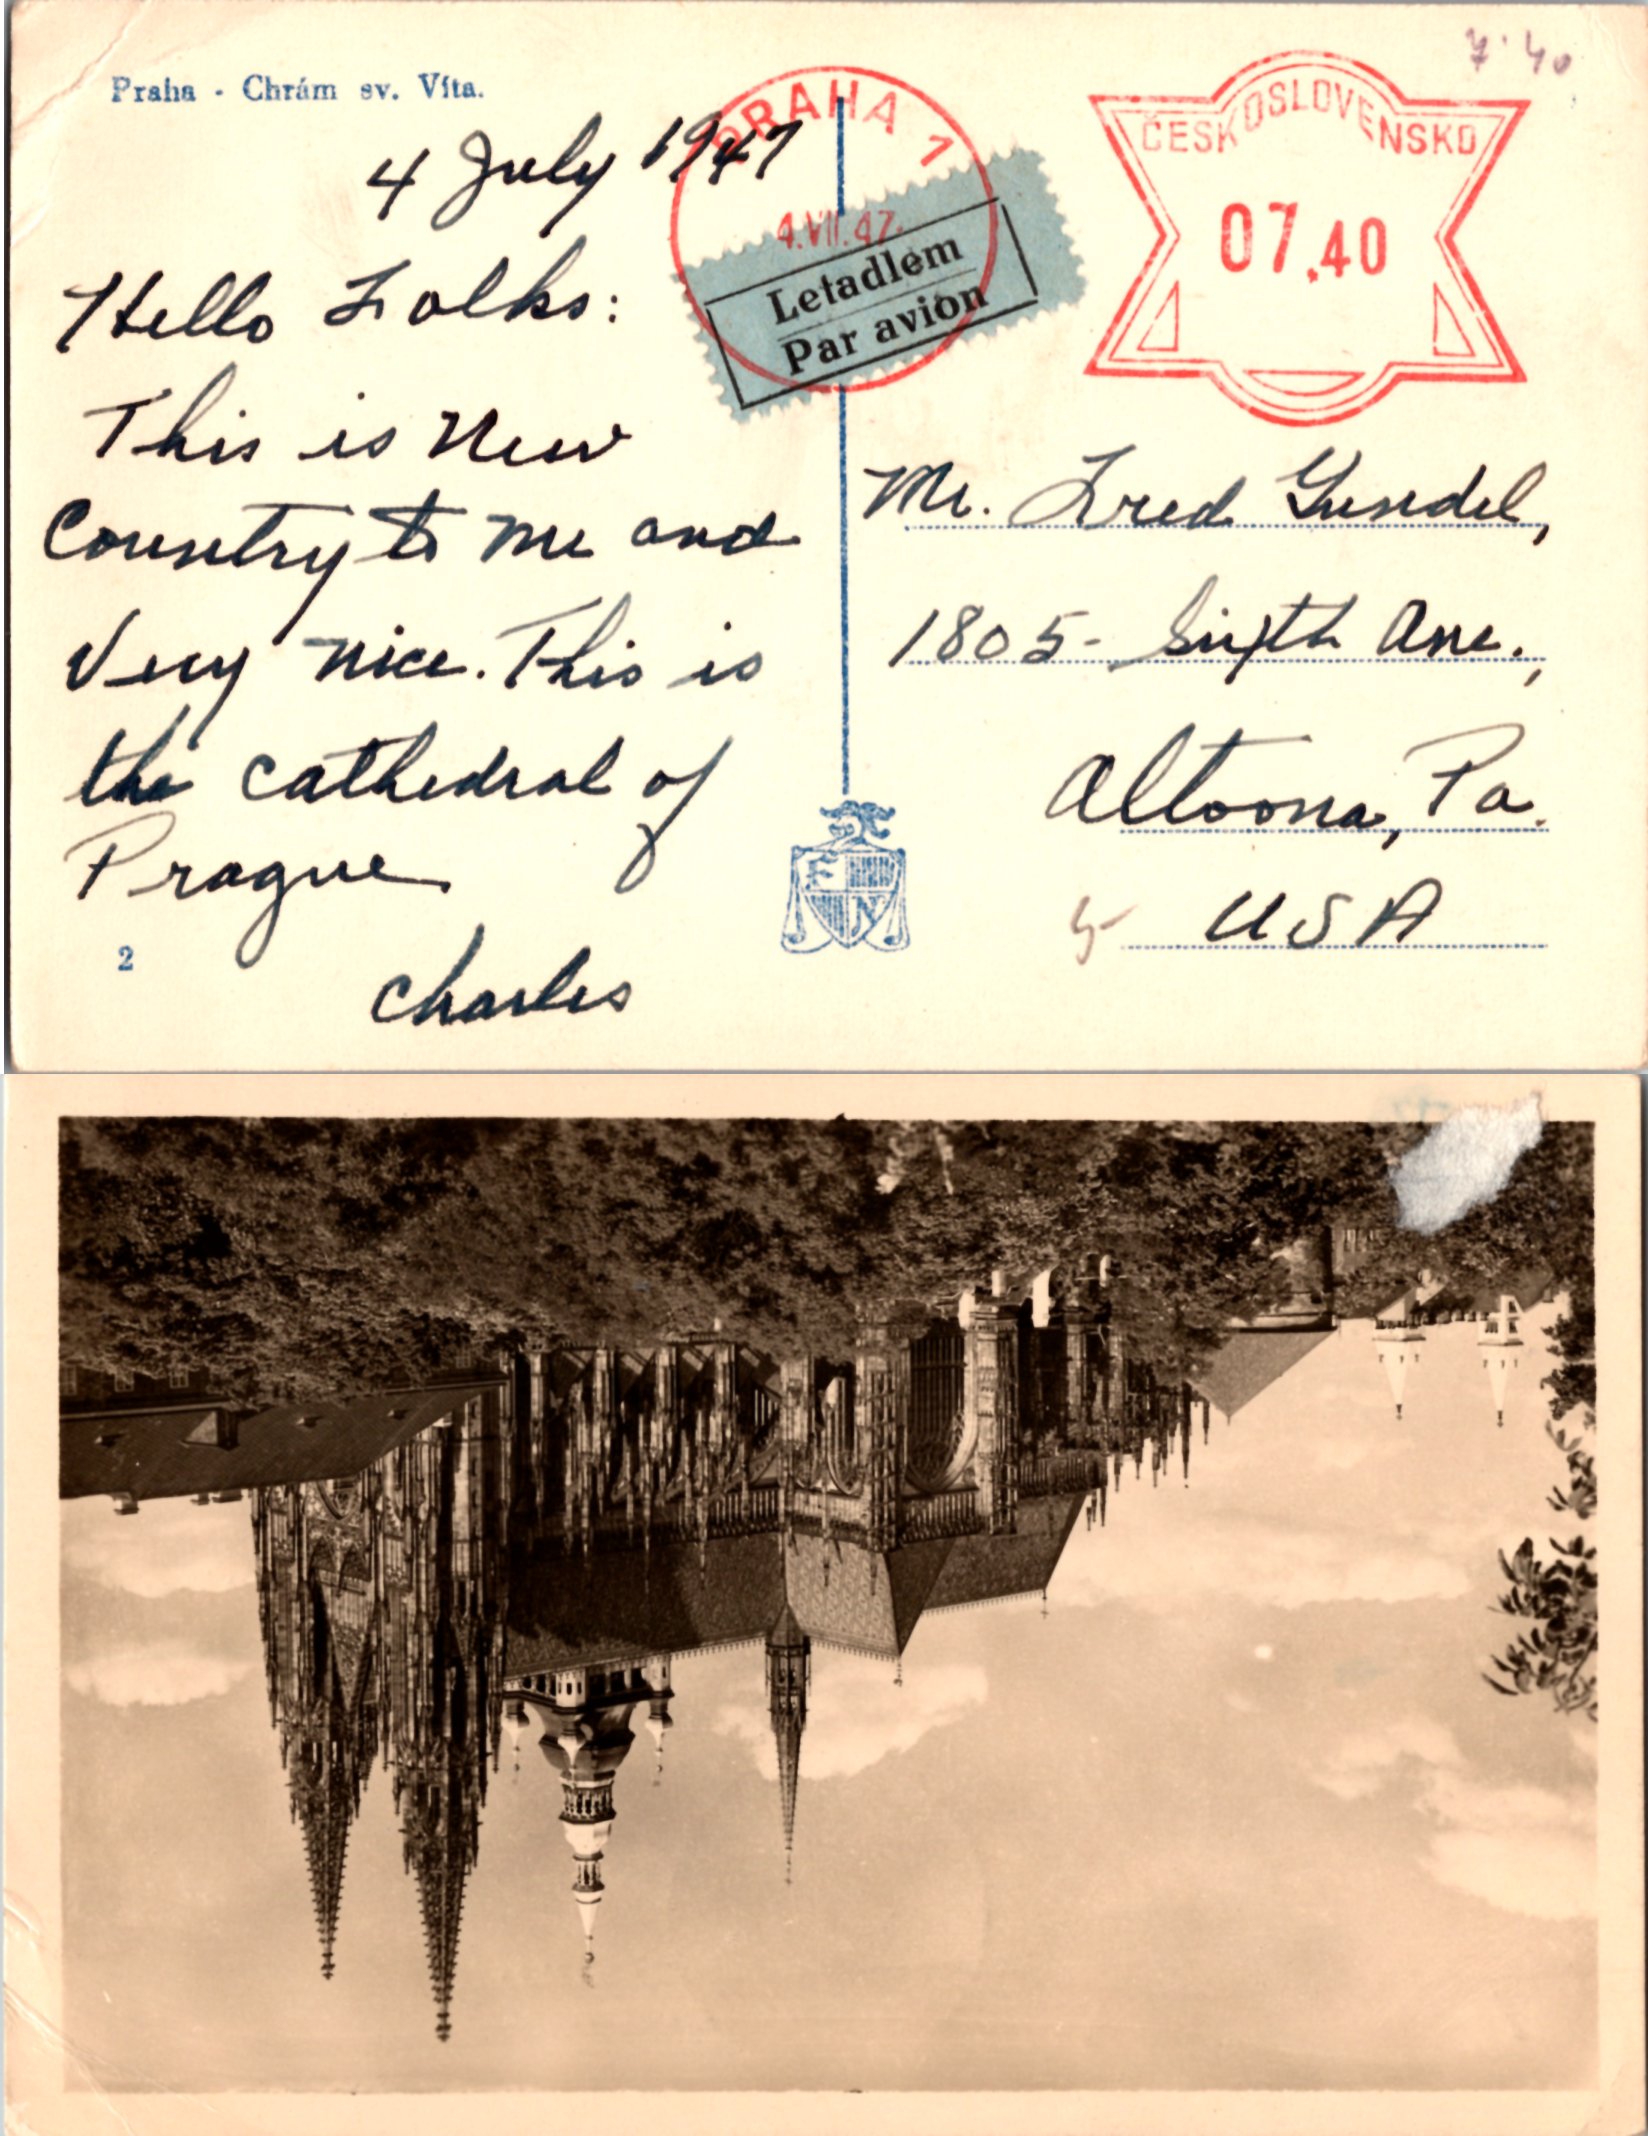 Praha - Chrám sv. Víta.
7.40
PRAHA 1
4.VII.47.
Letadlem
Par avion
ČESKOSLOVENSKO
07.40
4 July 1947
Hello Folks:
This is New
Country to me and
Very nice. This is
the Cathedral of
Prague
Charles
2
Mr. Fred Gundel,
1805 - Sixth Ave.,
Altoona, Pa.
USA
F N